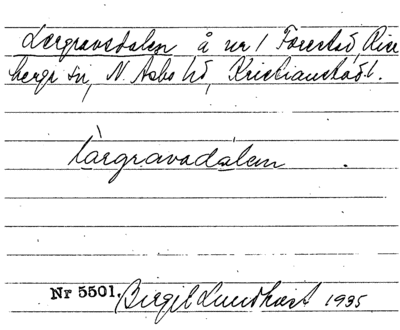 Lergravadalen å nr 1 Forestad, Rise
berga sn, N. Åsbo hd, Kristianstads l.
làrgravadálen.
Nr 5501. Birgit Lundkvist 1935